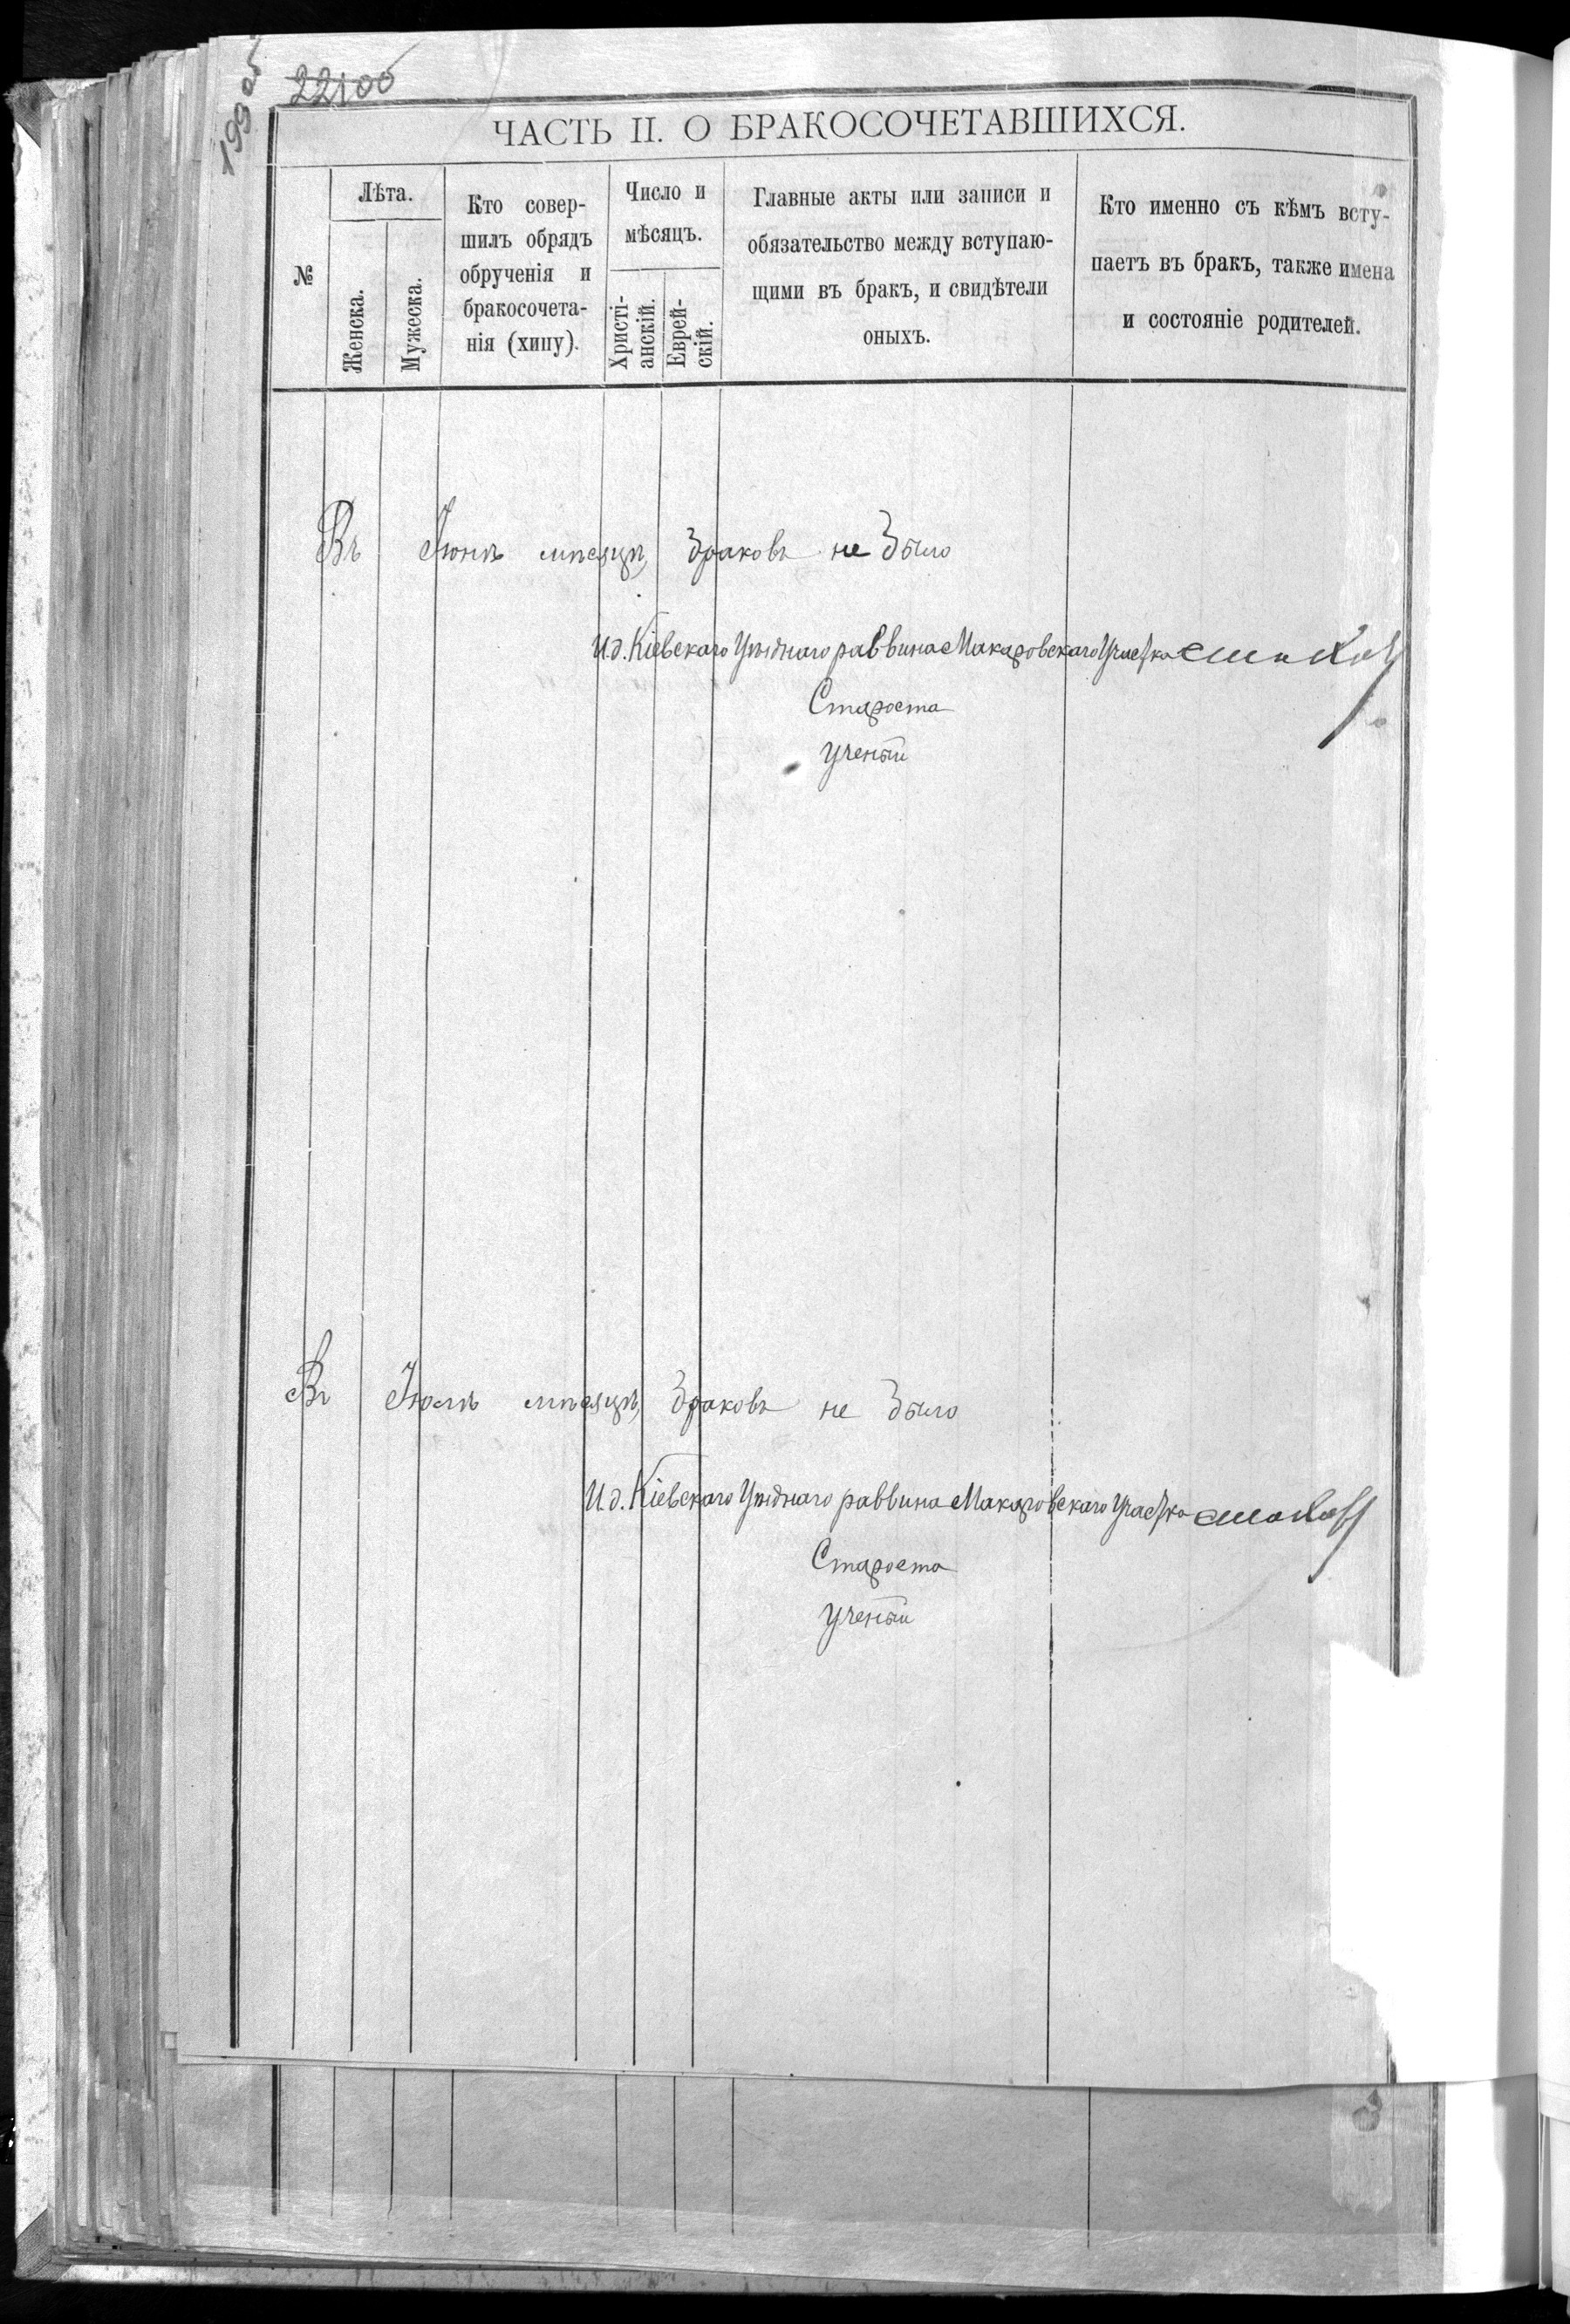 199об
22об
ЧАСТЬ II. О БРАКОСОЧЕТАВШИХСЯ.
№
Лѣта.
Женска.
Мужеска.
Кто совер-
шилъ обрядъ
обрученія и
бракосочета-
нія (хипу).
Число и
мѣсяцъ.
Христі-
анскій.
Еврей-
скій.
Главные акты или записи и
обязательство между вступаю-
щими въ бракъ, и свидѣтели
оныхъ.
Кто именно съ кѣмъ всту-
паетъ въ бракъ, также имена
и состояніе родителей.
Въ Іюнѣ мѣсяцѣ браковъ не было
И.д. Кіевскаго Уѣзднаго раввина Макаровскаго Участка
Староста
Ученый
Въ Іюлѣ мѣсяцѣ браковъ не было
И.д. Кіевскаго Уѣзднаго раввина Макаровскаго Участка
Староста
Ученый